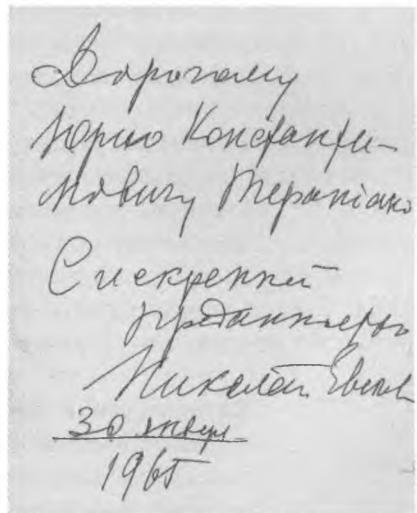 Дорогому
Юрию Константи-
новичу Терапиано
С искренней
преданностью
Николай Евсеев
30 января
1965